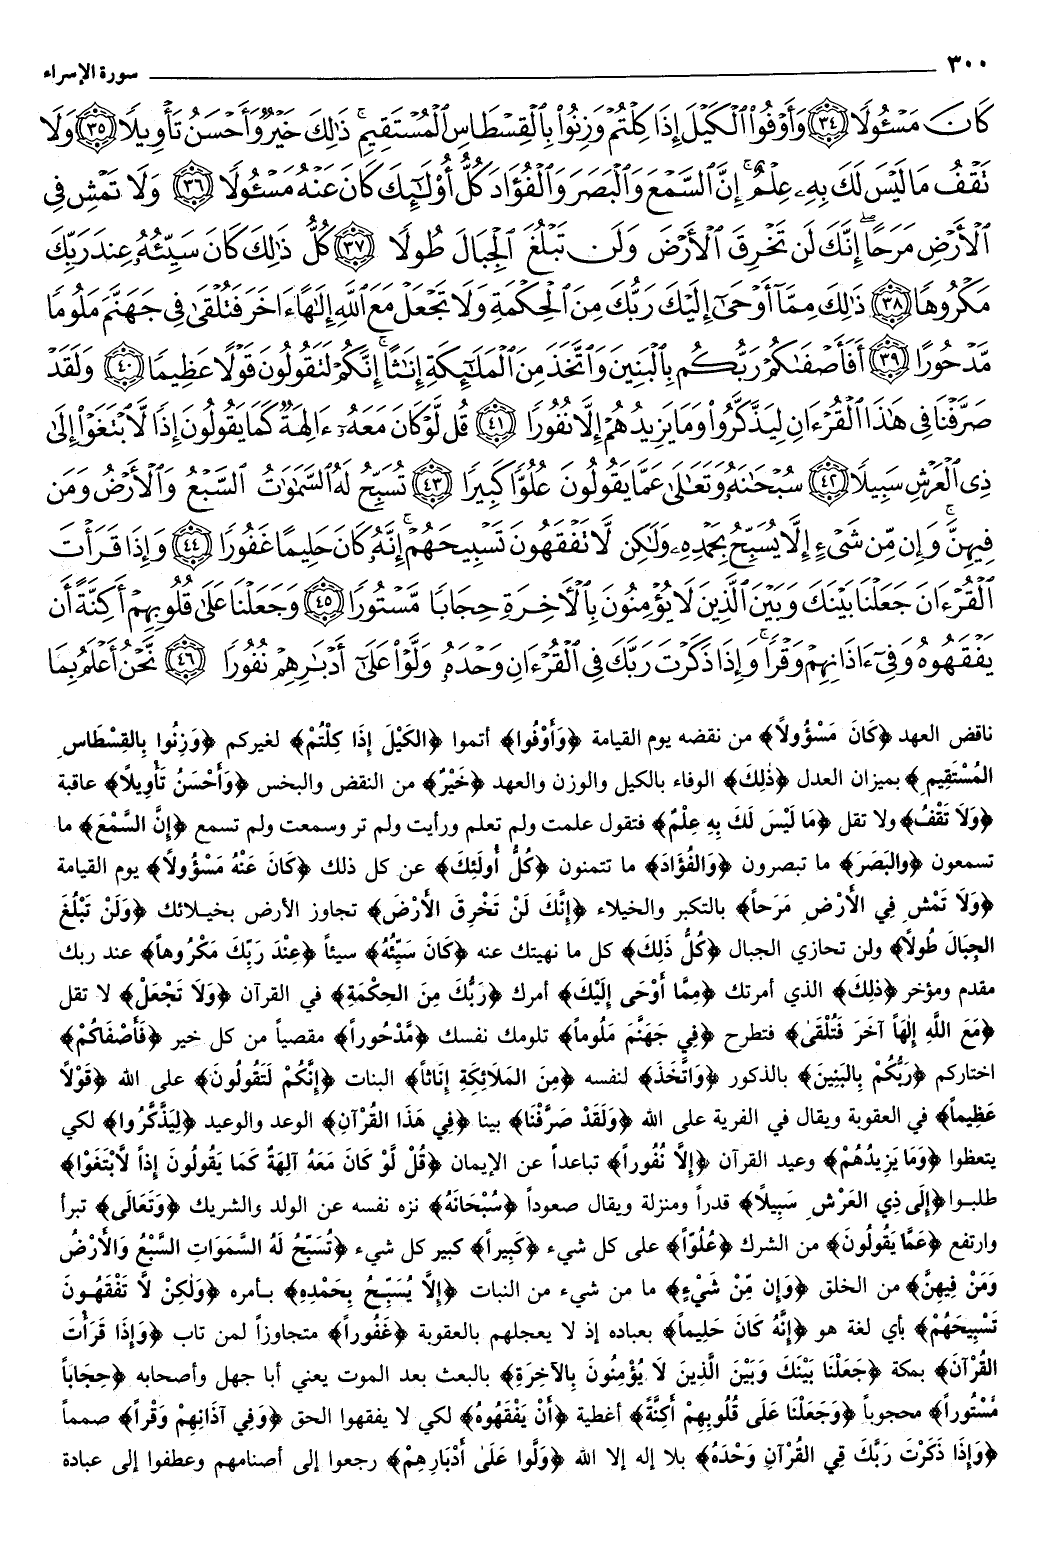 ٣٠٠ سورة الإسراء
كَانَ مَسْـُٔولًا ﴿٣٤﴾ وَأَوْفُوا۟ ٱلْكَيْلَ إِذَا كِلْتُمْ وَزِنُوا۟ بِٱلْقِسْطَاسِ ٱلْمُسْتَقِيمِ ۚ ذَٰلِكَ خَيْرٌ وَأَحْسَنُ تَأْوِيلًا ﴿٣٥﴾ وَلَا
تَقْفُ مَا لَيْسَ لَكَ بِهِۦ عِلْمٌ ۚ إِنَّ ٱلسَّمْعَ وَٱلْبَصَرَ وَٱلْفُؤَادَ كُلُّ أُو۟لَٰٓئِكَ كَانَ عَنْهُ مَسْـُٔولًا ﴿٣٦﴾ وَلَا تَمْشِ فِى
ٱلْأَرْضِ مَرَحًا ۖ إِنَّكَ لَن تَخْرِقَ ٱلْأَرْضَ وَلَن تَبْلُغَ ٱلْجِبَالَ طُولًا ﴿٣٧﴾ كُلُّ ذَٰلِكَ كَانَ سَيِّئُهُۥ عِندَ رَبِّكَ
مَكْرُوهًا ﴿٣٨﴾ ذَٰلِكَ مِمَّآ أَوْحَىٰٓ إِلَيْكَ رَبُّكَ مِنَ ٱلْحِكْمَةِ وَلَا تَجْعَلْ مَعَ ٱللَّهِ إِلَٰهًا ءَاخَرَ فَتُلْقَىٰ فِى جَهَنَّمَ مَلُومًا
مَّدْحُورًا ﴿٣٩﴾ أَفَأَصْفَىٰكُمْ رَبُّكُم بِٱلْبَنِينَ وَٱتَّخَذَ مِنَ ٱلْمَلَٰٓئِكَةِ إِنَٰثًا ۚ إِنَّكُمْ لَتَقُولُونَ قَوْلًا عَظِيمًا ﴿٤٠﴾ وَلَقَدْ
صَرَّفْنَا فِى هَٰذَا ٱلْقُرْءَانِ لِيَذَّكَّرُوا۟ وَمَا يَزِيدُهُمْ إِلَّا نُفُورًا ﴿٤١﴾ قُل لَّوْ كَانَ مَعَهُۥٓ ءَالِهَةٌ كَمَا يَقُولُونَ إِذًا لَّٱبْتَغَوْا۟ إِلَىٰ
ذِى ٱلْعَرْشِ سَبِيلًا ﴿٤٢﴾ سُبْحَٰنَهُۥ وَتَعَٰلَىٰ عَمَّا يَقُولُونَ عُلُوًّا كَبِيرًا ﴿٤٣﴾ تُسَبِّحُ لَهُ ٱلسَّمَٰوَٰتُ ٱلسَّبْعُ وَٱلْأَرْضُ وَمَن
فِيهِنَّ ۚ وَإِن مِّن شَىْءٍ إِلَّا يُسَبِّحُ بِحَمْدِهِۦ وَلَٰكِن لَّا تَفْقَهُونَ تَسْبِيحَهُمْ ۗ إِنَّهُۥ كَانَ حَلِيمًا غَفُورًا ﴿٤٤﴾ وَإِذَا قَرَأْتَ
ٱلْقُرْءَانَ جَعَلْنَا بَيْنَكَ وَبَيْنَ ٱلَّذِينَ لَا يُؤْمِنُونَ بِٱلْأَخِرَةِ حِجَابًا مَّسْتُورًا ﴿٤٥﴾ وَجَعَلْنَا عَلَىٰ قُلُوبِهِمْ أَكِنَّةً أَن
يَفْقَهُوهُ وَفِىٓ ءَاذَانِهِمْ وَقْرًا ۚ وَإِذَا ذَكَرْتَ رَبَّكَ فِى ٱلْقُرْءَانِ وَحْدَهُۥ وَلَّوْا۟ عَلَىٰٓ أَدْبَٰرِهِمْ نُفُورًا ﴿٤٦﴾ نَّحْنُ أَعْلَمُ بِمَا
ناقض العهد ﴿كَانَ مَسْؤُولاً﴾ من نقضه يوم القيامة ﴿وَأَوْفُوا﴾ أتموا ﴿الكَيْلَ إِذَا كِلْتُمْ﴾ لغيركم ﴿وَزِنُوا بِالقِسْطَاسِ
المُسْتَقِيمِ﴾ بميزان العدل ﴿ذٰلِكَ﴾ الوفاء بالكيل والوزن والعهد ﴿خَيْرٌ﴾ من النقض والبخس ﴿وَأَحْسَنُ تَأْوِيلاً﴾ عاقبة
﴿وَلاَ تَقْفُ﴾ ولا تقل ﴿مَا لَيْسَ لَكَ بِهِ عِلْمٌ﴾ فتقول علمت ولم تعلم ورأيت ولم تر وسمعت ولم تسمع ﴿إِنَّ السَّمْعَ﴾ ما
تسمعون ﴿والبَصَرَ﴾ ما تبصرون ﴿وَالفُؤَادَ﴾ ما تتمنون ﴿كُلُّ أُولَئِكَ﴾ عن كل ذلك ﴿كَانَ عَنْهُ مَسْؤُولاً﴾ يوم القيامة
﴿وَلاَ تَمْشِ فِي الأَرْضِ مَرَحاً﴾ بالتكبر والخيلاء ﴿إِنَّكَ لَنْ تَخْرِقَ الأَرْضَ﴾ تجاوز الأرض بخيلائك ﴿وَلَنْ تَبْلُغَ
الجِبَالَ طُولاً﴾ ولن تحازي الجبال ﴿كُلُّ ذَلِكَ﴾ كل ما نهيتك عنه ﴿كَانَ سَيِّئُهُ﴾ سيئاً ﴿عِنْدَ رَبِّكَ مَكْرُوهاً﴾ عند ربك
مقدم ومؤخر ﴿ذلِكَ﴾ الذي أمرتك ﴿مِمَّا أَوْحَى إِلَيْكَ﴾ أمرك ﴿رَبُّكَ مِنَ الحِكْمَةِ﴾ في القرآن ﴿وَلاَ تَجْعَلْ﴾ لا تقل
﴿مَعَ اللَّهِ إِلٰهاً آخَرَ فَتُلْقَىٰ﴾ فتطرح ﴿فِي جَهَنَّمَ مَلُوماً﴾ تلومك نفسك ﴿مَّدْحُوراً﴾ مقصياً من كل خير ﴿فَأَصْفَاكُمْ﴾
اختاركم ﴿رَبُّكُمْ بِالبَنِينَ﴾ بالذكور ﴿وَاتَّخَذَ﴾ لنفسه ﴿مِنَ المَلاَئِكَةِ إِنَاثاً﴾ البنات ﴿إِنَّكُمْ لَتَقُولُونَ﴾ على الله ﴿قَوْلاً
عَظِيماً﴾ في العقوبة ويقال في الفرية على الله ﴿وَلَقَدْ صَرَّفْنَا﴾ بينا ﴿فِي هَذَا القُرْآنِ﴾ الوعد والوعيد ﴿لِيَذَّكَّرُوا﴾ لكي
يتعظوا ﴿وَمَا يَزِيدُهُمْ﴾ وعيد القرآن ﴿إِلاَّ نُفُوراً﴾ تباعداً عن الإيمان ﴿قُلْ لَّوْ كَانَ مَعَهُ آلِهَةٌ كَمَا يَقُولُونَ إِذاً لاَّبْتَغَوْا﴾
طلبوا ﴿إِلَى ذِي العَرْشِ سَبِيلاً﴾ قدراً ومنزلة ويقال صعوداً ﴿سُبْحَانَهُ﴾ نزه نفسه عن الولد والشريك ﴿وَتَعَالَى﴾ تبرأ
وارتفع ﴿عَمَّا يَقُولُونَ﴾ من الشرك ﴿عُلُوّاً﴾ على كل شيء ﴿كَبِيراً﴾ كبير كل شيء ﴿تُسَبِّحُ لَهُ السَّمَوَاتِ السَّبْعُ وَالأَرْضُ
وَمَنْ فِيهِنَّ﴾ من الخلق ﴿وَإِن مِّنْ شَيْءٍ﴾ ما من شيء من النبات ﴿إِلاَّ يُسَبِّحُ بِحَمْدِهِ﴾ بأمره ﴿وَلٰكِنْ لاَّ تَفْقَهُونَ
تَسْبِيحَهُمْ﴾ بأي لغة هو ﴿إِنَّهُ كَانَ حَلِيماً﴾ بعباده إذ لا يعجلهم بالعقوبة ﴿غَفُوراً﴾ متجاوزاً لمن تاب ﴿وَإِذَا قَرَأْتَ
القُرْآنَ﴾ بمكة ﴿جَعَلْنَا بَيْنَكَ وَبَيْنَ الَّذِينَ لاَ يُؤْمِنُونَ بِالآخِرَةِ﴾ بالبعث بعد الموت يعني أبا جهل وأصحابه ﴿حِجَاباً
مَّسْتُوراً﴾ محجوباً ﴿وَجَعَلْنَا عَلَى قُلُوبِهِمْ أَكِنَّةً﴾ أغطية ﴿أَنْ يَفْقَهُوهُ﴾ لكي لا يفقهوا الحق ﴿وَفِي آذَانِهِمْ وَقْراً﴾ صمماً
﴿وَإِذَا ذَكَرْتَ رَبَّكَ فِي القُرْآنِ وَحْدَهُ﴾ بلا إله إلا الله ﴿وَلَّوا عَلَىٰ أَدْبَارِهِمْ﴾ رجعوا إلى أصنامهم وعطفوا إلى عبادة